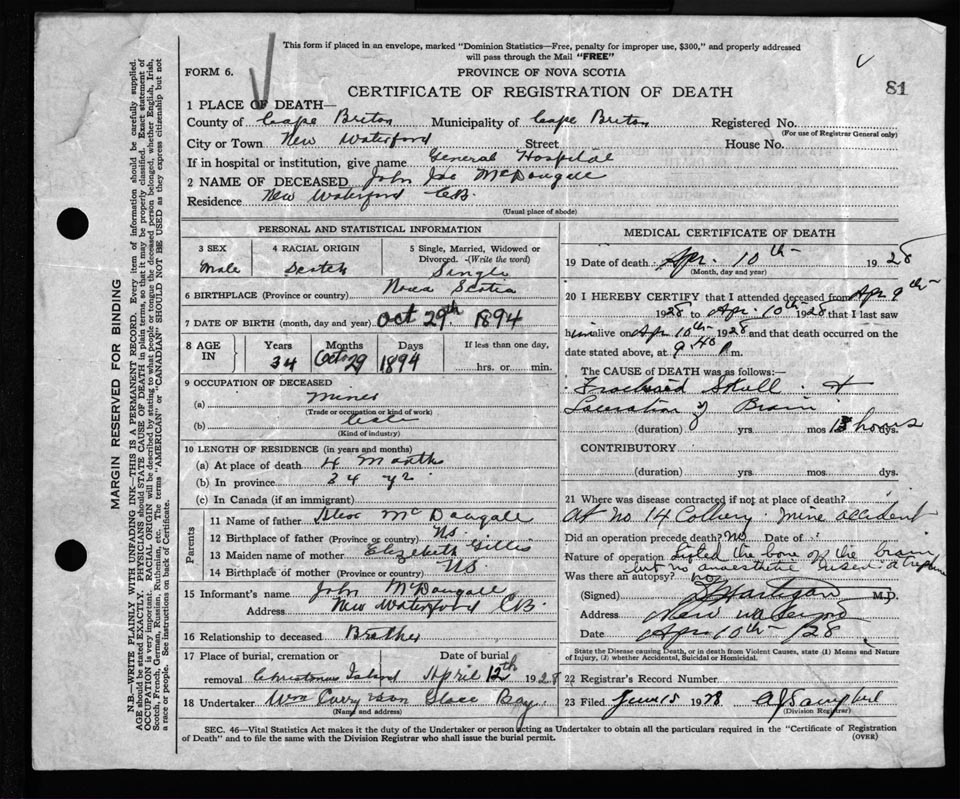 This form if placed in an envelope, marked "Dominion Statistics—Free, penalty for improper use, $300," and properly addressed
will pass through the Mail "FREE"
FORM 6.
PROVINCE OF NOVA SCOTIA
CERTIFICATE OF REGISTRATION OF DEATH
81
1 PLACE OF DEATH—
County of Cape Breton Municipality of Cape Breton Registered No.
(For use of Registrar General only)
City or Town New Waterford Street House No.
If in hospital or institution, give name General Hospital
2 NAME OF DECEASED John McDougall
Residence New Waterford C.B.
(Usual place of abode)
PERSONAL AND STATISTICAL INFORMATION
3 SEX 4 RACIAL ORIGIN 5 Single, Married, Widowed or
Divorced.—(Write the word)
Male Scotch Single
6 BIRTHPLACE (Province or country) Nova Scotia
7 DATE OF BIRTH (month, day and year) Oct 29th 1894
8 AGE IN Years Months Days If less than one day,
34 Oct 29 1894 hrs. or min.
9 OCCUPATION OF DECEASED
(a) Miner
(Trade or occupation or kind of work)
(b)
(Kind of industry)
10 LENGTH OF RESIDENCE (in years and months)
(a) At place of death 4 Months
(b) In province 34 yr
(c) In Canada (if an immigrant)
Parents
11 Name of father McDougall
12 Birthplace of father (Province or country) NS.
13 Maiden name of mother Gillis
14 Birthplace of mother (Province or country) NS
15 Informant's name John McDougall
Address New Waterford C.B.
16 Relationship to deceased Brother
17 Place of burial, cremation or Date of burial
removal Christmas Island April 12th 1928
18 Undertaker Wm Curry Glace Bay
(Name and address)
MEDICAL CERTIFICATE OF DEATH
19 Date of death Apr. 10th 1928
(Month, day and year)
20 I HEREBY CERTIFY that I attended deceased from Apr 9th
1928 to Apr 10th 1928 that I last saw
him alive on Apr 10th 1928 and that death occurred on the
date stated above, at 9.40 m.
The CAUSE OF DEATH was as follows:—
Skull &
Laceration of Brain
(duration) yrs. mos hours dys.
CONTRIBUTORY
(duration) yrs. mos. dys.
21 Where was disease contracted if not at place of death?
At no 14 Colliery. mine accident
Did an operation precede death? No Date of
Nature of operation Lifted the bone of the brain
but no anaesthetic
Was there an autopsy? no
(Signed) M.D.
Address New Waterford
Date Apr 10th /28
State the Disease causing Death, or in death from Violent Causes, state (1) Means and Nature
of Injury, (2) whether Accidental, Suicidal or Homicidal.
22 Registrar's Record Number
23 Filed June 15 1928
(Division Registrar)
SEC. 46—Vital Statistics Act makes it the duty of the Undertaker or person acting as Undertaker to obtain all the particulars required in the "Certificate of Registration
of Death" and to file the same with the Division Registrar who shall issue the burial permit.
(OVER)
MARGIN RESERVED FOR BINDING
N.B.—WRITE PLAINLY WITH UNFADING INK—THIS IS A PERMANENT RECORD. Every item of information should be carefully supplied.
AGE should be stated EXACTLY. PHYSICIANS should STATE CAUSE OF DEATH in plain terms, so that it may be properly classified. Exact statement of
OCCUPATION is very important. RACIAL ORIGIN will be described by stating to what people or tongue the deceased person belonged, whether English, Irish,
Scotch, French, German, Russian, Ruthenian, etc. The terms "AMERICAN" or "CANADIAN" SHOULD NOT BE USED as they express citizenship but not
a race or people. See instructions on back of Certificate.